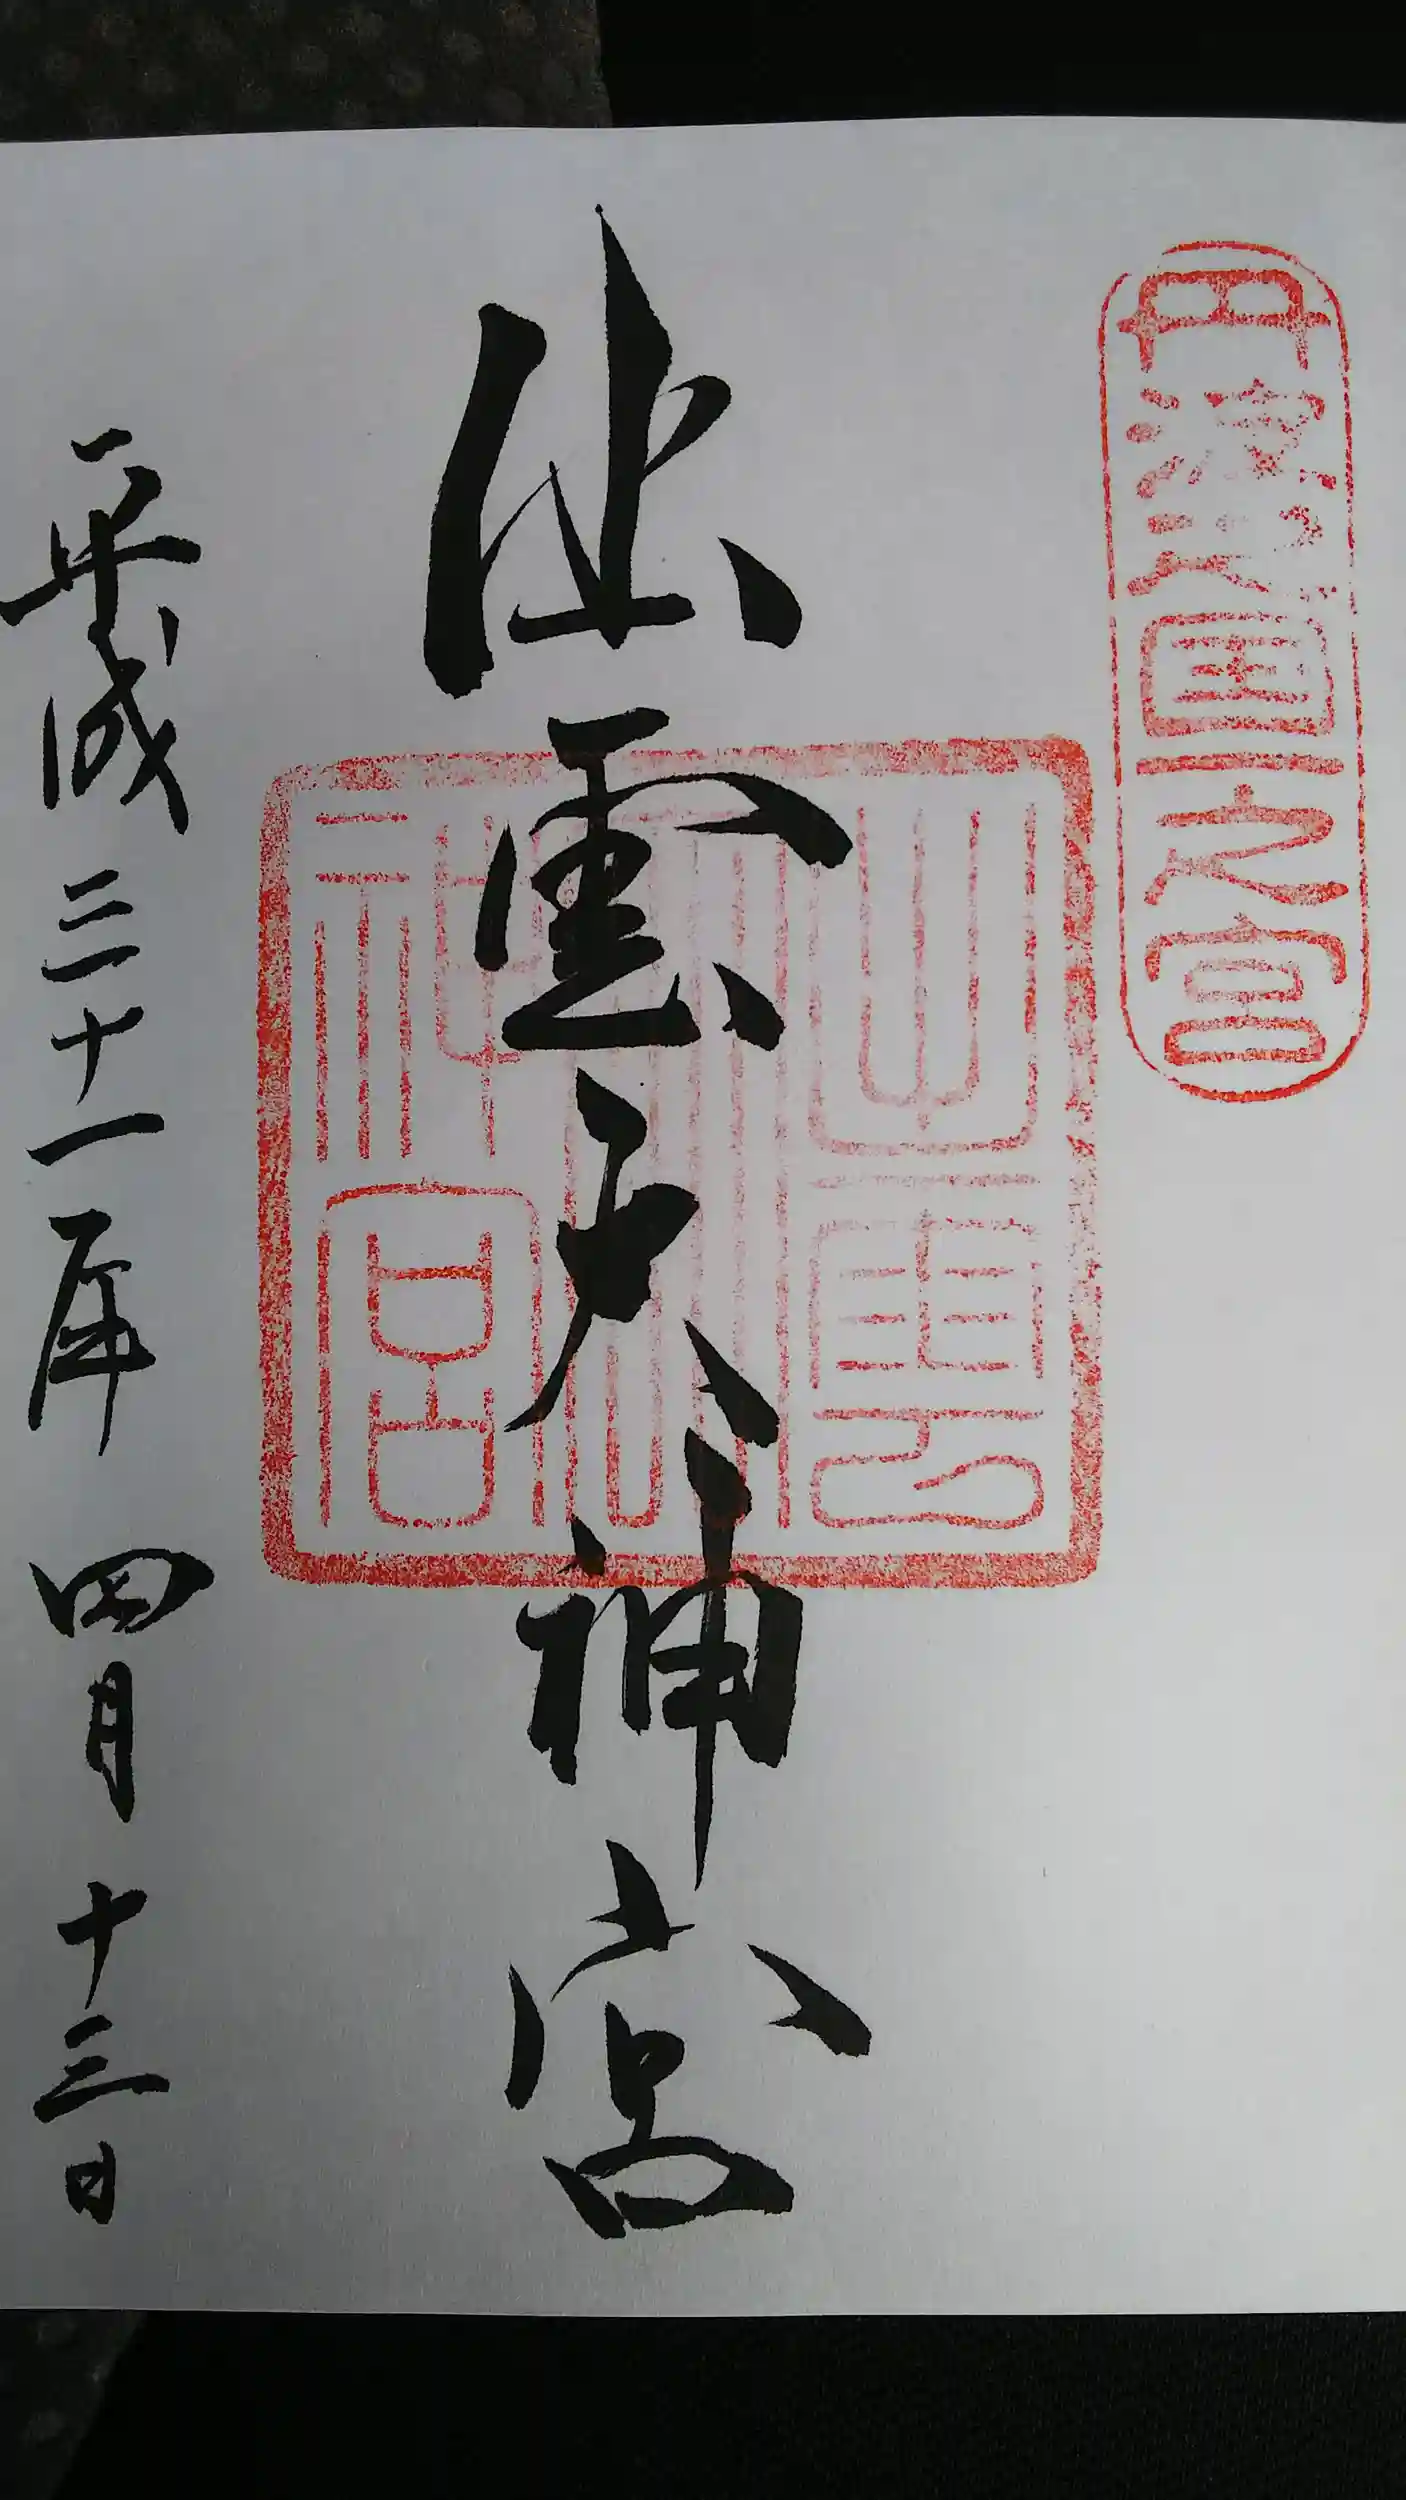 丹波国一之宮
出雲大神宮
平成三十一年 四月 十三日
出雲大神宮